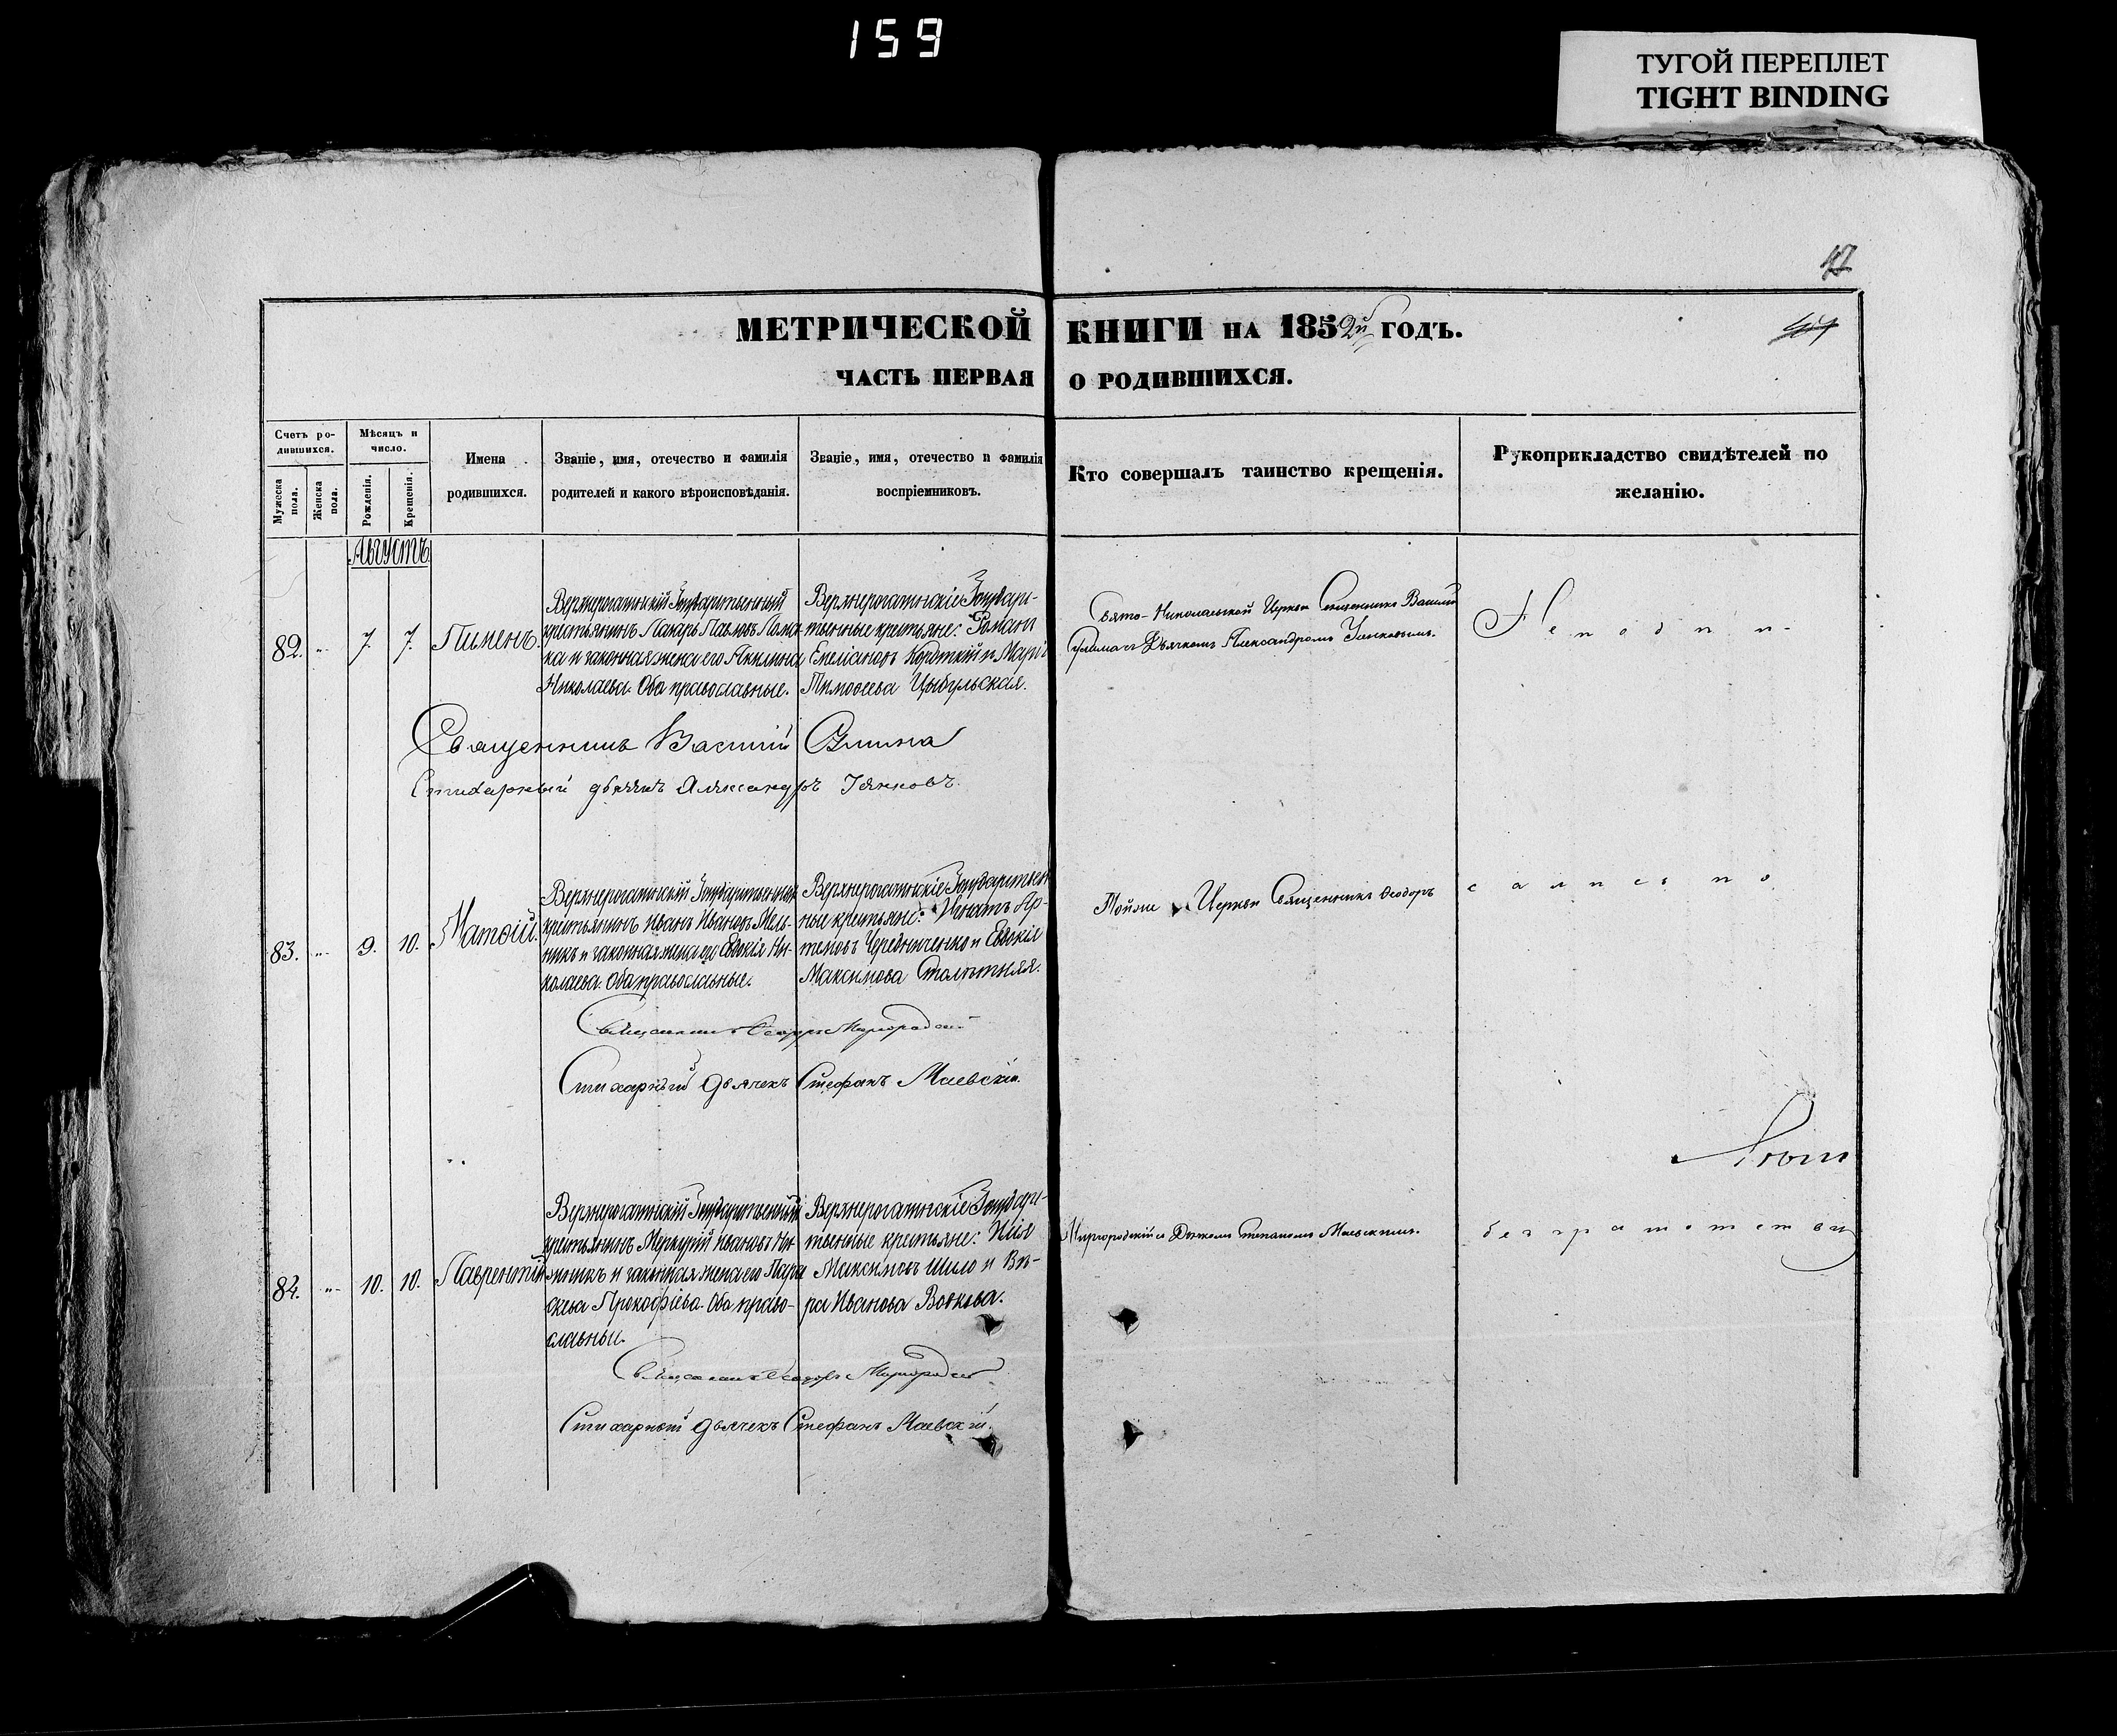 159
ТУГОЙ ПЕРЕПЛЕТ
TIGHT BINDING
47
МЕТРИЧЕСКОЙ КНИГИ НА 1852й ГОДЪ.
ЧАСТЬ ПЕРВАЯ О РОДИВШИХСЯ.
Счетъ ро-
дившихся.
Мужеска пола.
Женска пола.
Мѣсяцъ и
число.
Рожденія.
Крещенія.
Имена
родившихся.
Званіе, имя, отечество и фамилія
родителей и какого вѣроисповѣданія.
Званіе, имя, отечество и фамилія
воспріемниковъ.
Кто совершалъ таинство крещенія.
Рукоприкладство свидѣтелей по
желанію.
Августъ
82. 7. 7. Пименъ.
Верхнерогатикскій Государственный
крестьянинъ Макарь Павловъ
ка и законная жена его Акилина
Николаева. Оба православные.
Верхнерогатикскіе Государ-
ственные крестьяне: Романъ
Емеліановъ Короткій и Марія
Тимоѳеева Цыбульская.
Свято-Николаевской Церкви Священникъ Василій
съ Дьячкомъ Александромъ
Не подп и-
Священникъ Василій
Стихарный дьячекъ Александръ
83. 9. 10. Матѳій.
Верхнерогатикскій Государственный
крестьянинъ Иванъ Ивановъ Мель-
никъ и законная жена его Евдокія Ни-
колаева. Оба православные.
Верхнерогатикскіе Государствен-
ные крестьяне: Игнатъ Ар-
темовъ Чередниченко и Евдокія
Максимова Столѣтняя.
Тойже Церкви Священникъ Ѳеодоръ
сались по
Священникъ Ѳеодоръ Миргородскій
Стихарный дьячекъ Стефанъ Маевскій.
84. 10. 10. Лаврентій
Верхнерогатикскій Государственный
крестьянинъ Меркурій Ивановъ
и законная жена его Пара
скева Прокофіева. Оба право-
славные.
Верхнерогатикскіе Государ-
ственные крестьяне: Илія
Максимовъ Шило и Вѣ-
ра Иванова Вовкова.
Миргородскій съ Дьячкомъ Стефаномъ Маевскимъ.
безграмотству
Священникъ Ѳеодоръ Миргородскій
Стихарный дьячекъ Стефанъ Маевскій.